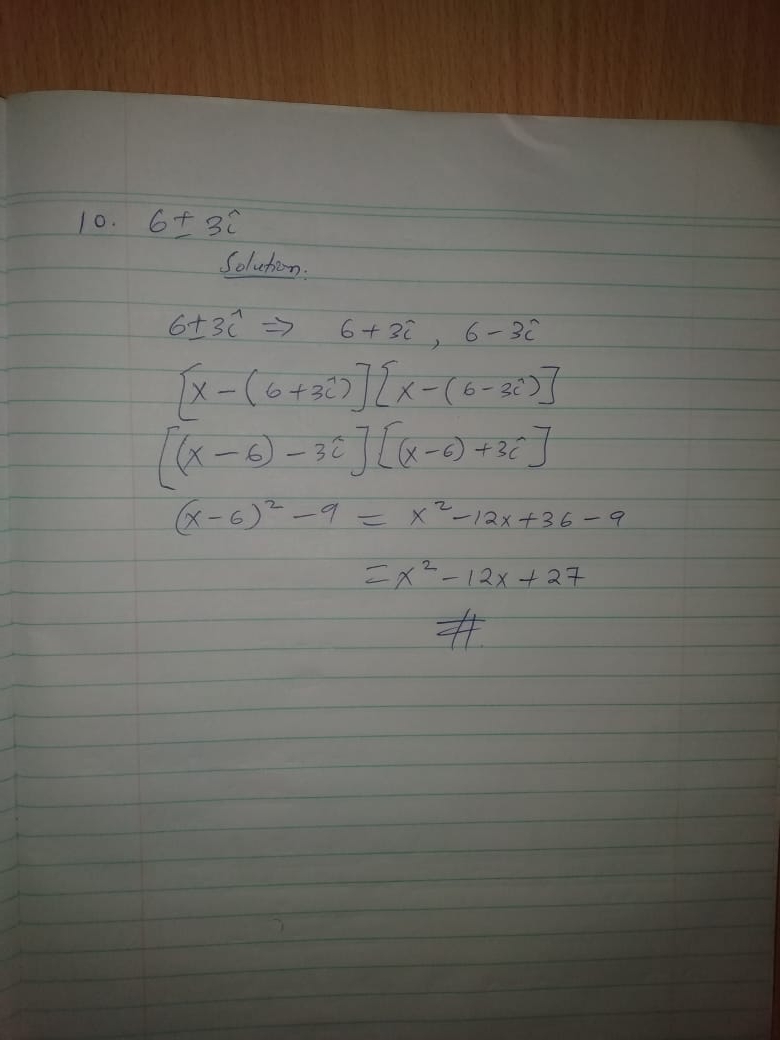 10. 6 ± 3î
Solution.
6±3î ⇒ 6+3î, 6-3î
[x-(6+3î)][x-(6-3î)]
[(x-6)-3î][(x-6)+3î]
(x-6)² -9 = x²-12x+36-9
=x²-12x+27
#